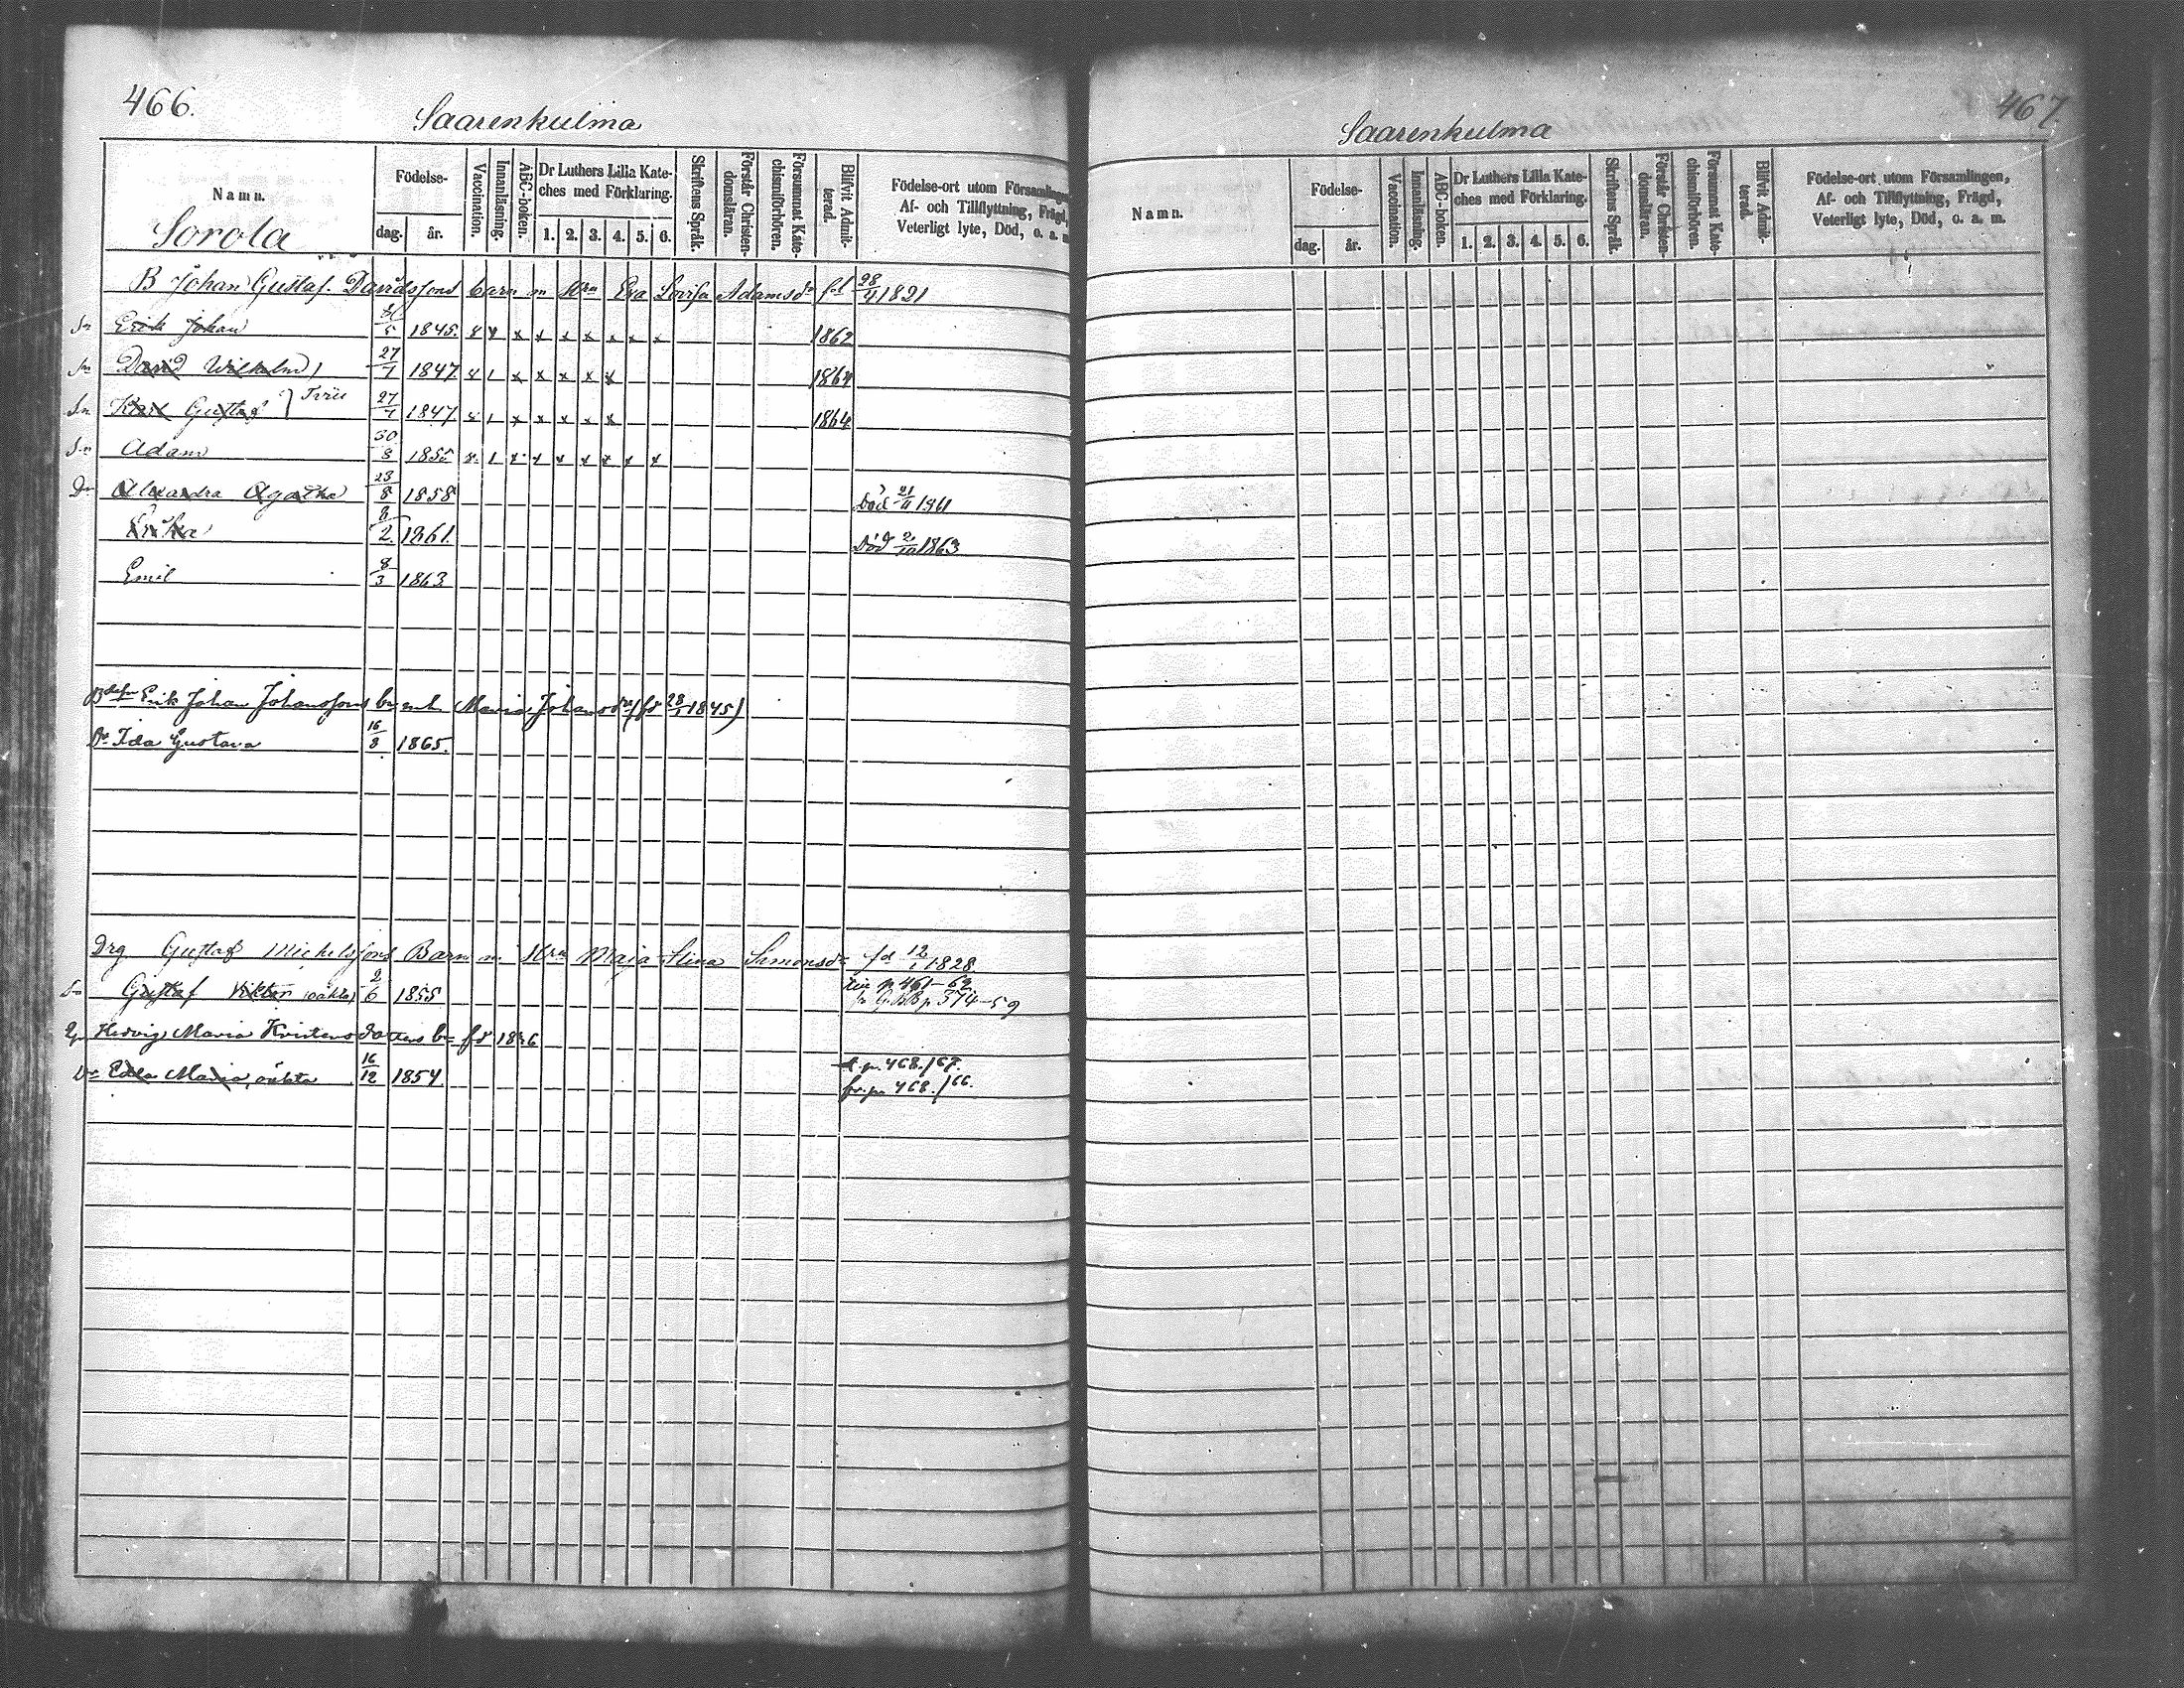 466.
Saarenkulma
Namn.
Födelse-
dag.
år.
Vaccination.
Innanläsning.
ABC-boken.
Dr Luthers Lilla Kate-
ches med Förklaring.
1. 2. 3. 4. 5. 6.
Skriftens Språk.
Förstår Christen-
domsläran.
Försummat Kate-
chismiförhören.
Blifvit Admit-
terad.
Födelse-ort utom Församlingen,
Af- och Tillflyttning, Frägd,
Veterligt lyte, Död, o. a. m.
Sorola
B Johan Gustaf Davidssons barn m Hru Eva Lovisa Adamsdr fd 28/4 1821
Sn Erik Johan /5 1845. x x x x x x x x x 1862
Sn David Wilhelm 27/7 1847 x 1 x x x x x 1864
Sn Karl Gustaf } 27/7 1847 x 1 x x x x x 1864
Sn Adam 30/8 1855 x 1 x x x x x x x
Dr Alexandra Agatha 23/8 1858 Död 21/11 1861
Erika 8/2 1861. Död 2/10 1863
Emil 8/3 1863
Erik Johan Johanssons bn m h Maria Johansdr (fd 28/1 1845)
Dr Ida Gustava 16/8 1865.
Drg Gustaf Michelssons Barn m Hru Maja Stina Simonsdr fd 12/1 1828
Sn Gustaf Viktor (oäkta) 2/6 1855 p 461-62
fr G.BB p. 574-59
Hedvig Maria Kristersdotters bn fd 1836
Dr Edla Maria, oäkta 16/12 1854 t. p. 468./67.
fr. p. 468./66.
467
Saarenkulma
Namn.
Födelse-
dag.
år.
Vaccination.
Innanläsning.
ABC-boken.
Dr Luthers Lilla Kate-
ches med Förklaring.
1. 2. 3. 4. 5. 6.
Skriftens Språk.
Förstår Christen-
domsläran.
Försummat Kate-
chismiförhören.
Blifvit Admit-
terad.
Födelse-ort utom Församlingen,
Af- och Tillflyttning, Frägd,
Veterligt lyte, Död, o. a. m.